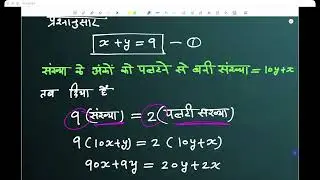 प्रश्नानुसार
x + y = 9 — ①
संख्या के अंकों को पलटने से बनी संख्या = 10y + x
तब दिया है
9 (संख्या) = 2 (पलटी संख्या)
9 (10x + y) = 2 (10y + x)
90x + 9y = 20y + 2x